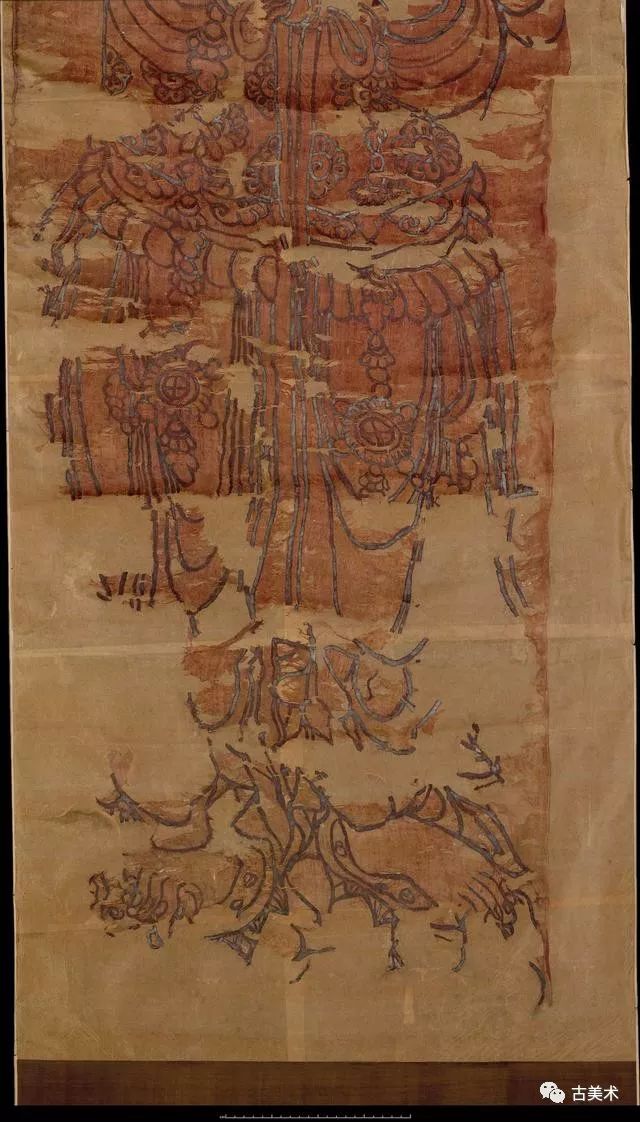 古美术